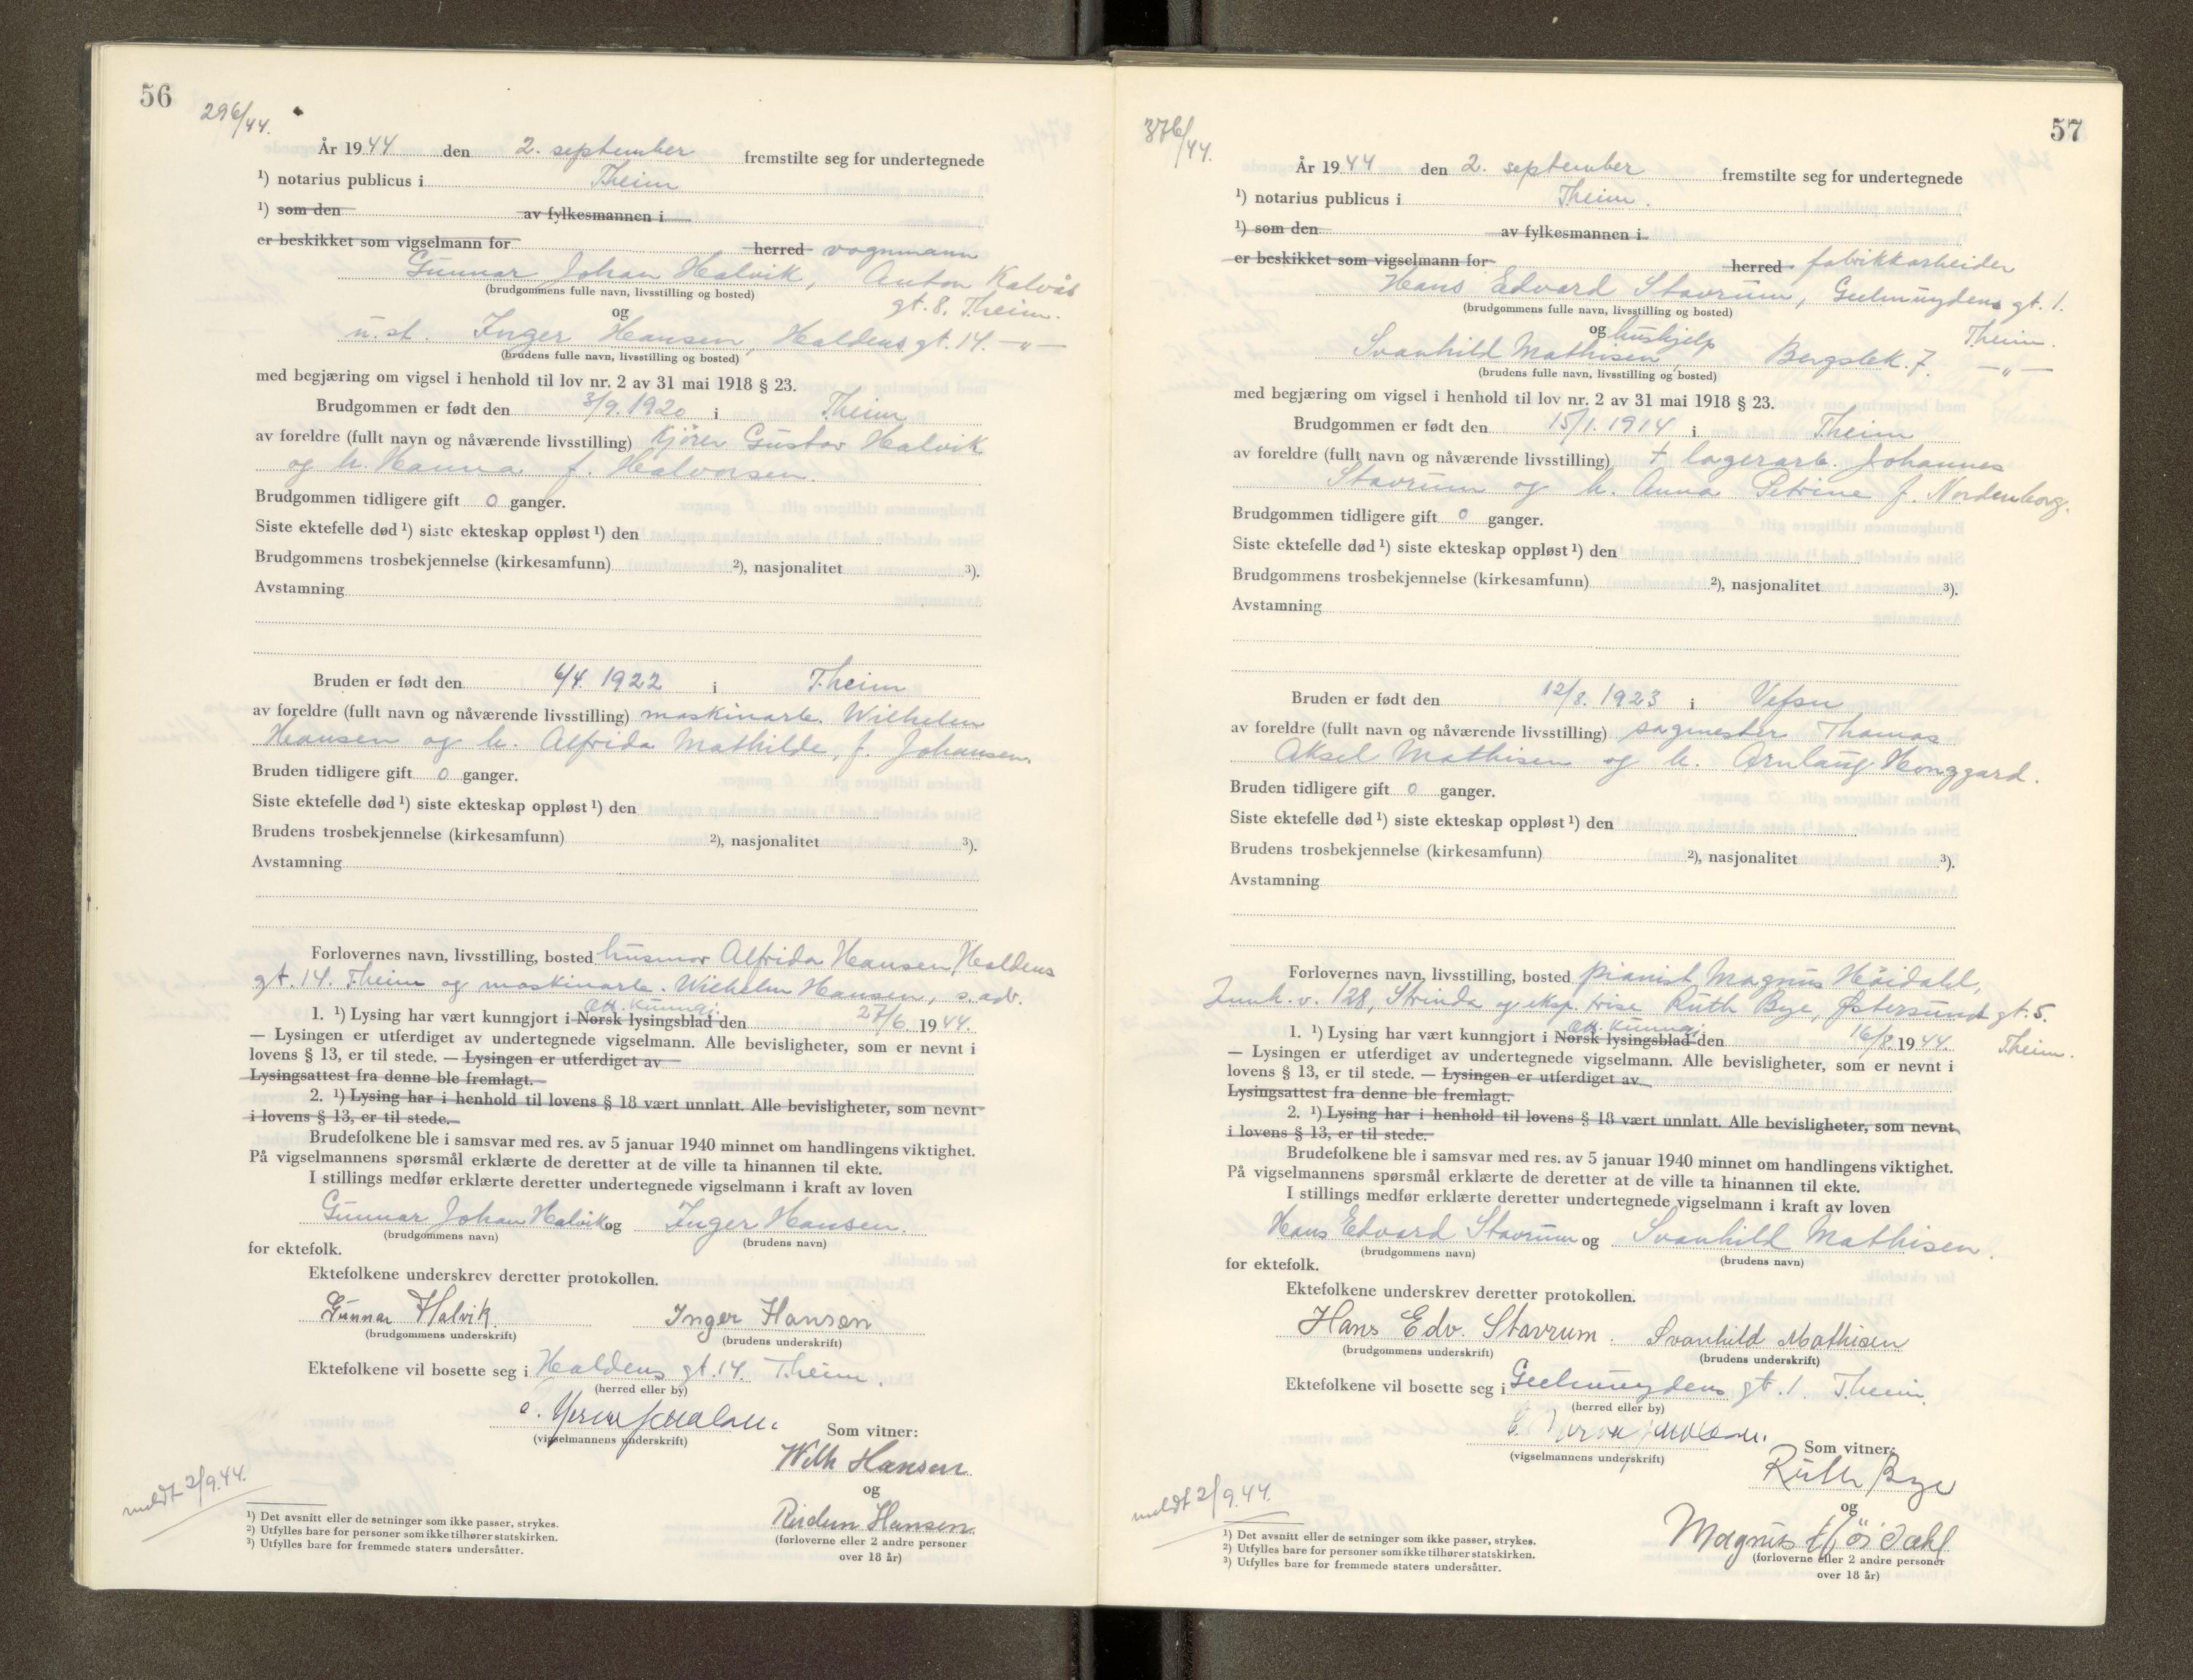 56
296/44.
År 1944 den 2. september fremstilte seg for undertegnede
¹) notarius publicus i Theim
¹) som den av fylkesmannen i
er beskikket som vigselmann for herred vognmann
Gunnar Johan Halvik, Anton Kalvås
(brudgommens fulle navn, livsstilling og bosted) gt. 8. Theim.
og
u.st. Inger Hansen, Haldens gt. 14. —"—
(brudens fulle navn, livsstilling og bosted)
med begjæring om vigsel i henhold til lov nr. 2 av 31 mai 1918 § 23.
Brudgommen er født den 3/9. 1920 i Theim
av foreldre (fullt navn og nåværende livsstilling) kjörer Gustav Halvik
og h. Hanna f. Halvorsen.
Brudgommen tidligere gift 0 ganger.
Siste ektefelle død ¹) siste ekteskap oppløst ¹) den
Brudgommens trosbekjennelse (kirkesamfunn) ²), nasjonalitet ³).
Avstamning
Bruden er født den 6/4. 1922 i Theim
av foreldre (fullt navn og nåværende livsstilling) maskinarb. Wilhelm
Hansen og h. Alfrida Mathilde, f. Johansen.
Bruden tidligere gift 0 ganger.
Siste ektefelle død ¹) siste ekteskap oppløst ¹) den
Brudens trosbekjennelse (kirkesamfunn) ²), nasjonalitet ³).
Avstamning
Forlovernes navn, livsstilling, bosted husmor Alfrida Hansen, Haldens
gt. 14. Theim og maskinarb. Wilhelm Hansen, s. adr.
off. kunngj.
1. ¹) Lysing har vært kunngjort i Norsk lysingsblad den 27/6 1944.
— Lysingen er utferdiget av undertegnede vigselmann. Alle bevisligheter, som er nevnt i
lovens § 13, er til stede. — Lysingen er utferdiget av
Lysingsattest fra denne ble fremlagt.
2. ¹) Lysing har i henhold til lovens § 18 vært unnlatt. Alle bevisligheter, som nevnt
i lovens § 13, er til stede.
Brudefolkene ble i samsvar med res. av 5 januar 1940 minnet om handlingens viktighet.
På vigselmannens spørsmål erklærte de deretter at de ville ta hinannen til ekte.
I stillings medfør erklærte deretter undertegnede vigselmann i kraft av loven
Gunnar Johan Halvik og Inger Hansen.
(brudgommens navn) (brudens navn)
for ektefolk.
Ektefolkene underskrev deretter protokollen.
Gunnar Halvik. Inger Hansen
(brudgommens underskrift) (brudens underskrift)
Ektefolkene vil bosette seg i Haldens gt. 14. Theim.
(herred eller by)
(vigselmannens underskrift) Som vitner:
Wilh Hansen
og
Reidun Hansen
(forloverne eller 2 andre personer
over 18 år)
meldt 2/9.44.
¹) Det avsnitt eller de setninger som ikke passer, strykes.
²) Utfylles bare for personer som ikke tilhører statskirken.
³) Utfylles bare for fremmede staters undersåtter.
57
376/44.
År 1944 den 2. september fremstilte seg for undertegnede
¹) notarius publicus i Theim.
¹) som den av fylkesmannen i
er beskikket som vigselmann for herred fabrikkarbeider
Hans Edvard Stavrum, Geelmuydens gt. 1.
(brudgommens fulle navn, livsstilling og bosted)
og hushjelp Theim.
Svanhild Mathisen, Bergslek. 7. —"—
(brudens fulle navn, livsstilling og bosted)
med begjæring om vigsel i henhold til lov nr. 2 av 31 mai 1918 § 23.
Brudgommen er født den 15/1. 1914 i Theim
av foreldre (fullt navn og nåværende livsstilling) † lagerarb. Johannes
Stavrum og h. Anna Petrine f. Nordenborg.
Brudgommen tidligere gift 0 ganger.
Siste ektefelle død ¹) siste ekteskap oppløst ¹) den
Brudgommens trosbekjennelse (kirkesamfunn) ²), nasjonalitet ³).
Avstamning
Bruden er født den 12/8. 1923 i Vefsn
av foreldre (fullt navn og nåværende livsstilling) sagmester Thomas
Aksel Mathisen og h. Arnlaug
Bruden tidligere gift 0 ganger.
Siste ektefelle død ¹) siste ekteskap oppløst ¹) den
Brudens trosbekjennelse (kirkesamfunn) ²), nasjonalitet ³).
Avstamning
Forlovernes navn, livsstilling, bosted pianist Magnus Höidahl,
v. 128, Strinda og eksp. trise Ruth Bye, Østersunds gt. 5.
off. kunngj.
1. ¹) Lysing har vært kunngjort i Norsk lysingsblad den 16/8. 1944. Theim.
— Lysingen er utferdiget av undertegnede vigselmann. Alle bevisligheter, som er nevnt i
lovens § 13, er til stede. — Lysingen er utferdiget av
Lysingsattest fra denne ble fremlagt.
2. ¹) Lysing har i henhold til lovens § 18 vært unnlatt. Alle bevisligheter, som nevnt
i lovens § 13, er til stede.
Brudefolkene ble i samsvar med res. av 5 januar 1940 minnet om handlingens viktighet.
På vigselmannens spørsmål erklærte de deretter at de ville ta hinannen til ekte.
I stillings medfør erklærte deretter undertegnede vigselmann i kraft av loven
Hans Edvard Stavrum og Svanhild Mathisen.
(brudgommens navn) (brudens navn)
for ektefolk.
Ektefolkene underskrev deretter protokollen.
Hans Edv. Stavrum. Svanhild Mathisen
(brudgommens underskrift) (brudens underskrift)
Ektefolkene vil bosette seg i Geelmuydens gt. 1. Theim.
(herred eller by)
(vigselmannens underskrift) Som vitner:
Ruth Bye
og
Magnus Höidahl
(forloverne eller 2 andre personer
over 18 år)
meldt 2/9.44.
¹) Det avsnitt eller de setninger som ikke passer, strykes.
²) Utfylles bare for personer som ikke tilhører statskirken.
³) Utfylles bare for fremmede staters undersåtter.